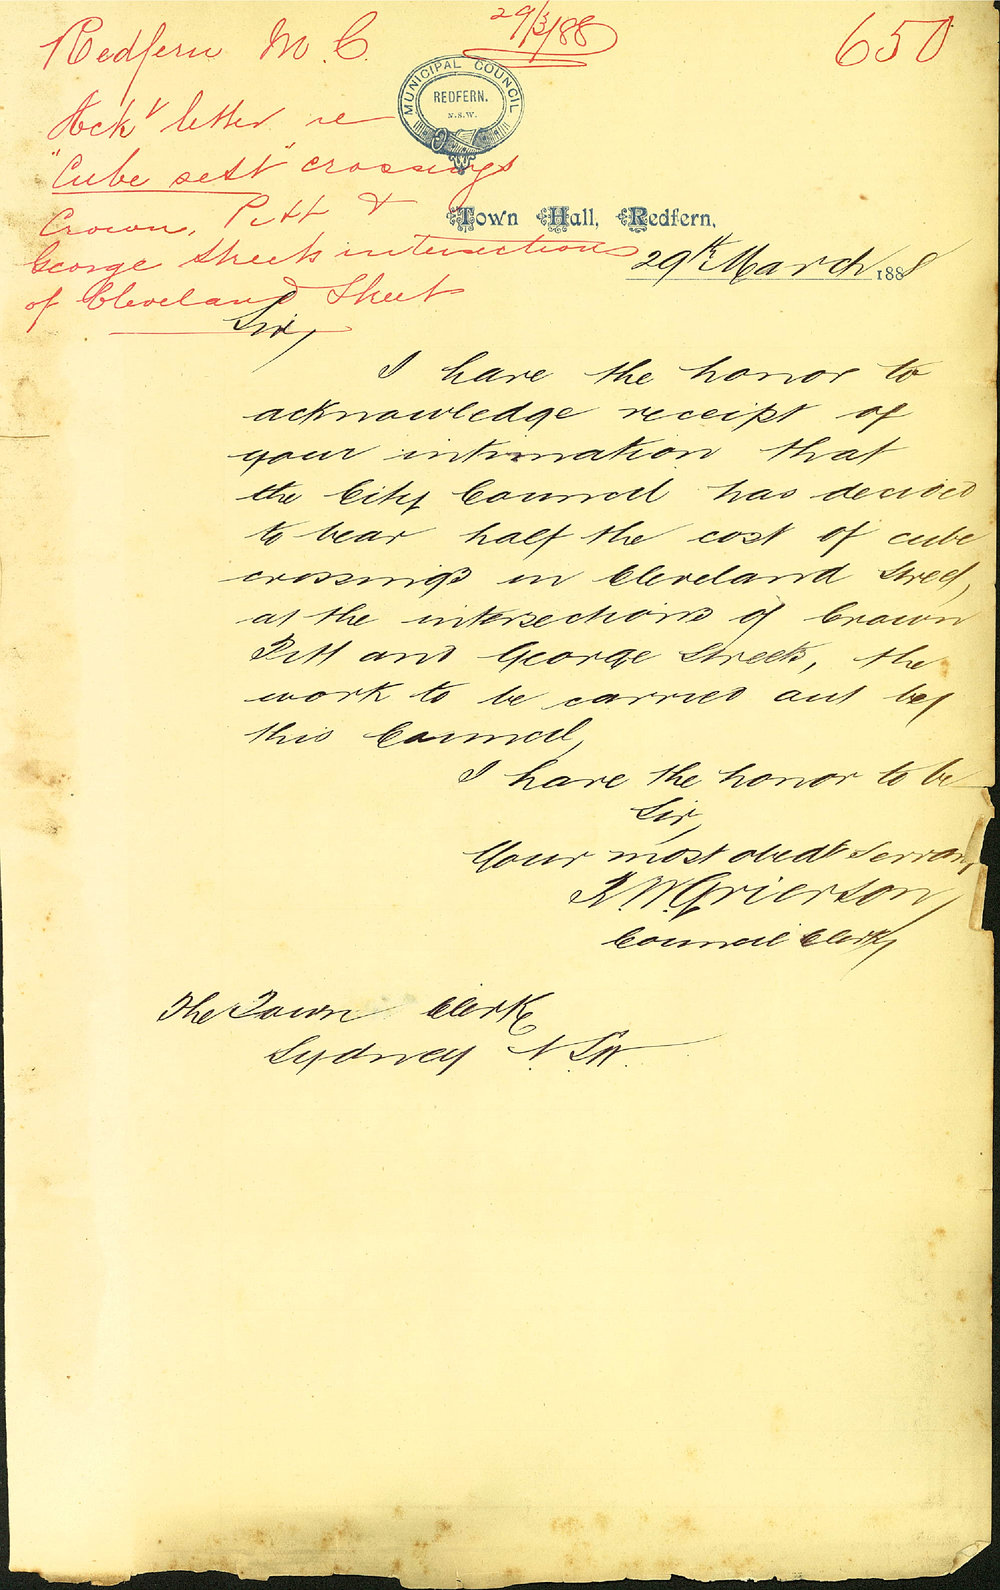 Redfern M.C. 29/3/88 650
Ackg letter re
"Cube sett" crossings
Crown, Pitt &
George Streets intersections
of Cleveland Street
MUNICIPAL COUNCIL
REDFERN.
N.S.W.
Town Hall, Redfern,
29th March 1888
Sir,
I have the honor to
acknowledge receipt of
your intimation that
the City Council has decided
to bear half the cost of cube
crossings in Cleveland Street,
at the intersections of Crown
Pitt and George Streets, the
work to be carried out by
this Council,
I have the honor to be
Sir,
Your most obedt Servant,
Grierson
Council Clerk
The Town Clerk
Sydney N.S.W.